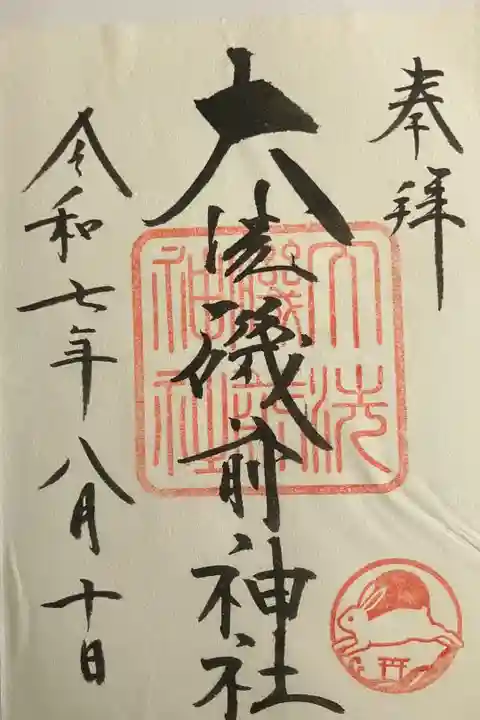 奉拝
大洗磯前神社
大洗
磯前
神社
令和七年八月十日